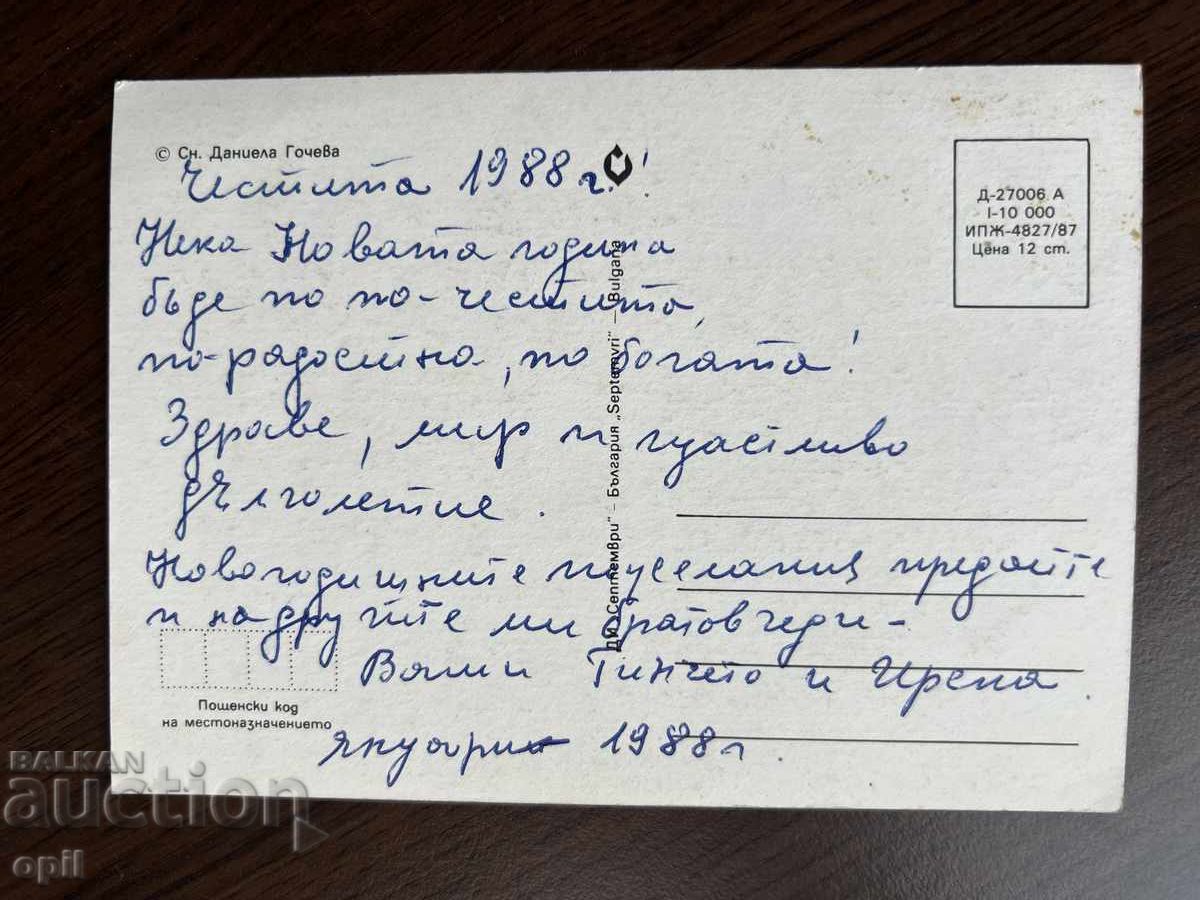 © Сн. Даниела Гочева
Честита 1988 г.!
Нека Новата година
бъде по по-честита,
по-радостна, по богата!
Здраве, мир и щастливо
дълголетие.
Новогодишните пожелания предайте
и на другите ми братовчеди -
Ваши Гинчето и Ирена.
януари 1988 г.
Д-27006 А
I-10 000
ИПЖ-4827/87
Цена 12 ст.
ДИ „Септември" – България „Septemvri" – Bulgaria
Пощенски код
на местоназначението
BALKAN
auction
opil